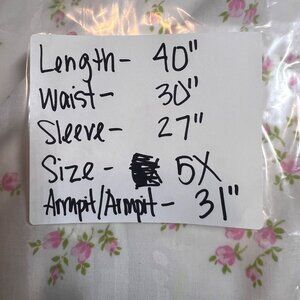 Length- 40"
Waist- 30"
Sleeve- 27"
Size- 5X
Armpit/Armpit- 31"